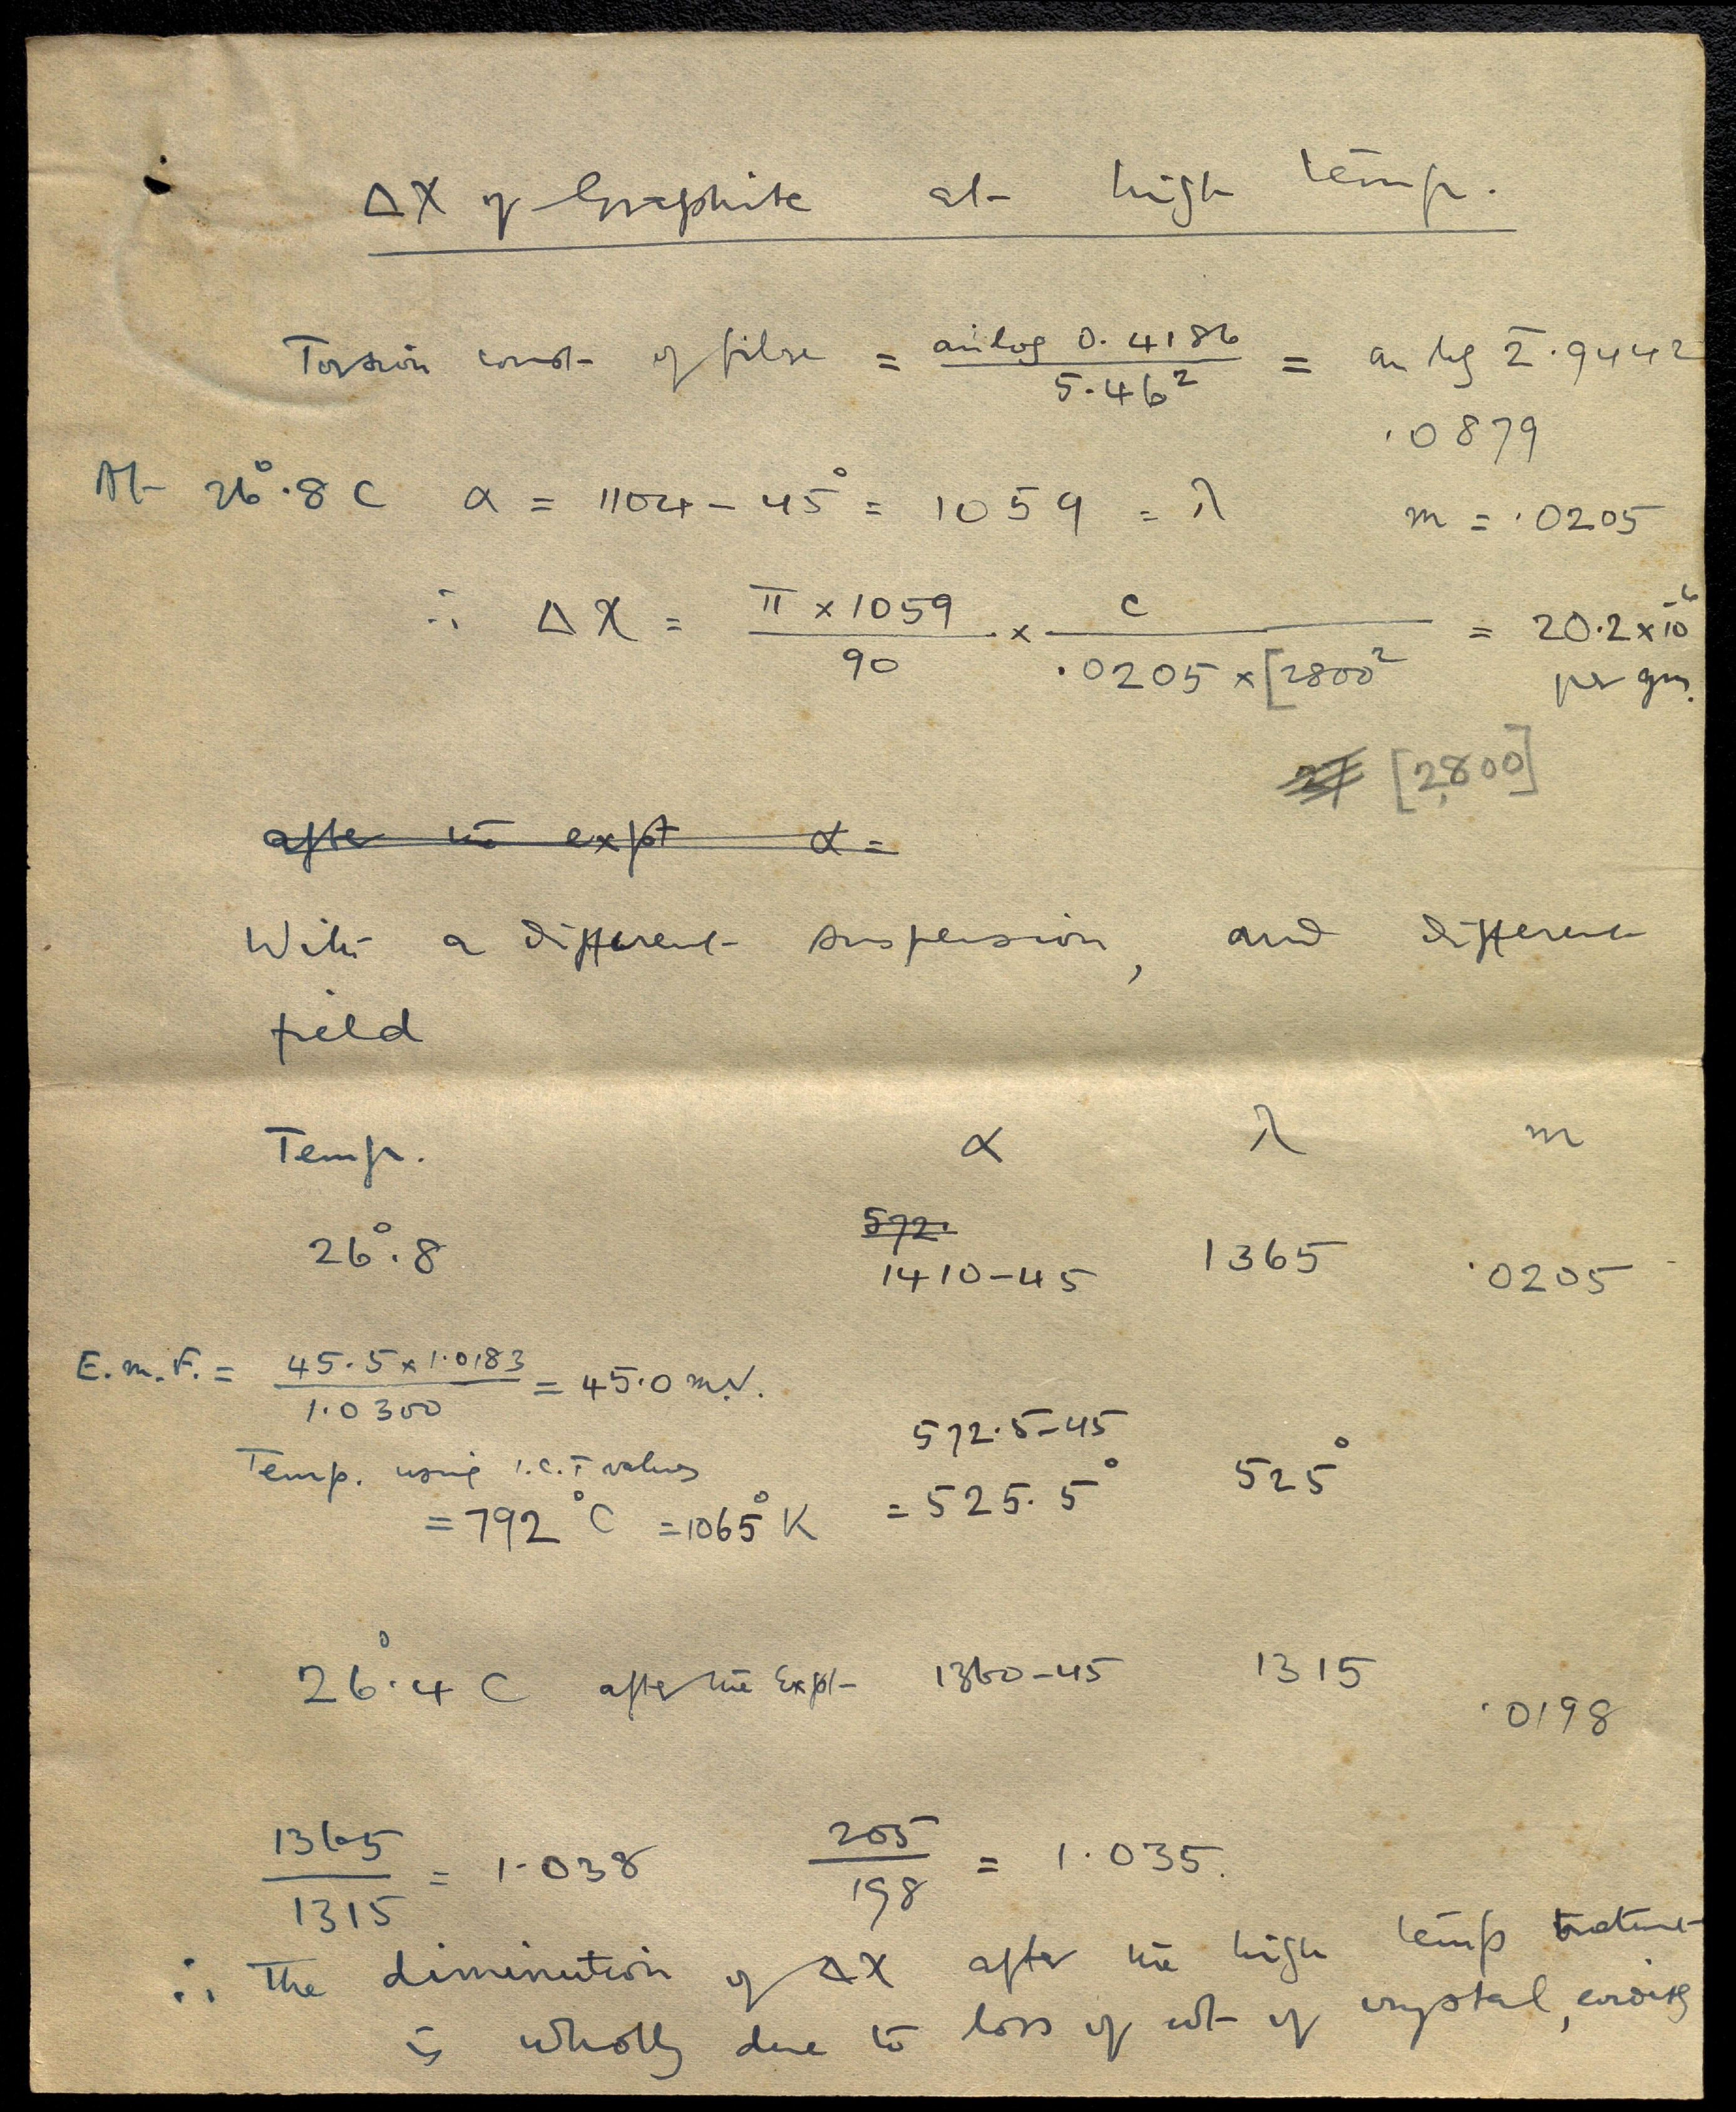 ΔX of Graphite at high temp.
Torsion const of fibre = antilog 0.4186 / 5.46² = an log 2̄.9442
.0879
At 26°.8 C α = 1104 - 45° = 1059 = λ m = .0205
∴ ΔX = π × 1059 / 90 × c / .0205 × [2800² = 20.2 × 10⁻⁶
per gm.
27 [2800]
after the expt α =
With a different suspension, and different
field
Temp. α λ m
572.
26°.8 1410-45 1365 .0205
E.m.F. = 45.5 × 1.0183 / 1.0300 = 45.0 m.V.
572.5-45
Temp. using I.C.T values
= 792°C = 1065°K = 525.5° 525°
26°.4 C after the Expt 1360-45 1315
.0198
1365 / 1315 = 1.038 205 / 198 = 1.035.
∴ The diminution of ΔX after the high temp treatment
is wholly due to loss of wt of crystal,